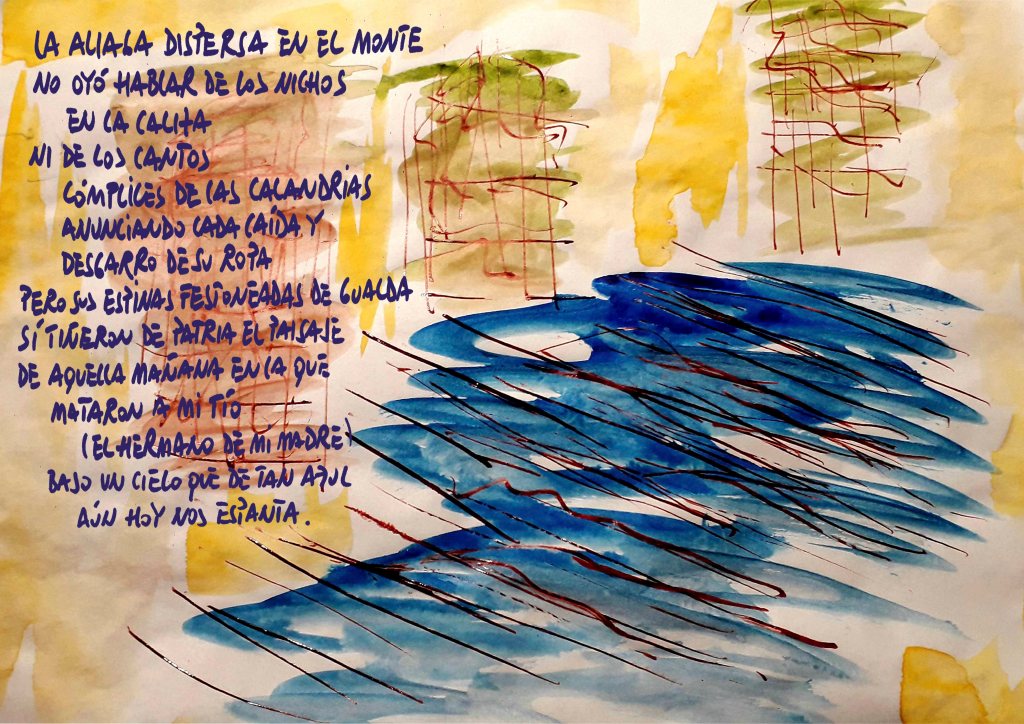 LA ALIAGA DISPERSA EN EL MONTE
NO OYÓ HABLAR DE LOS NICHOS
EN LA CALITA
NI DE LOS CANTOS
CÓMPLICES DE LAS CALANDRIAS
ANUNCIANDO CADA CAÍDA Y
DESGARRO DE SU ROPA
PERO SUS ESPINAS FESTONEADAS DE GUALDA
SÍ TIÑERON DE PATRIA EL PAISAJE
DE AQUELLA MAÑANA EN LA QUE
MATARON A MI TÍO
(EL HERMANO DE MI MADRE)
BAJO UN CIELO QUE DE TAN AZUL
AÚN HOY NOS ESPANTA.